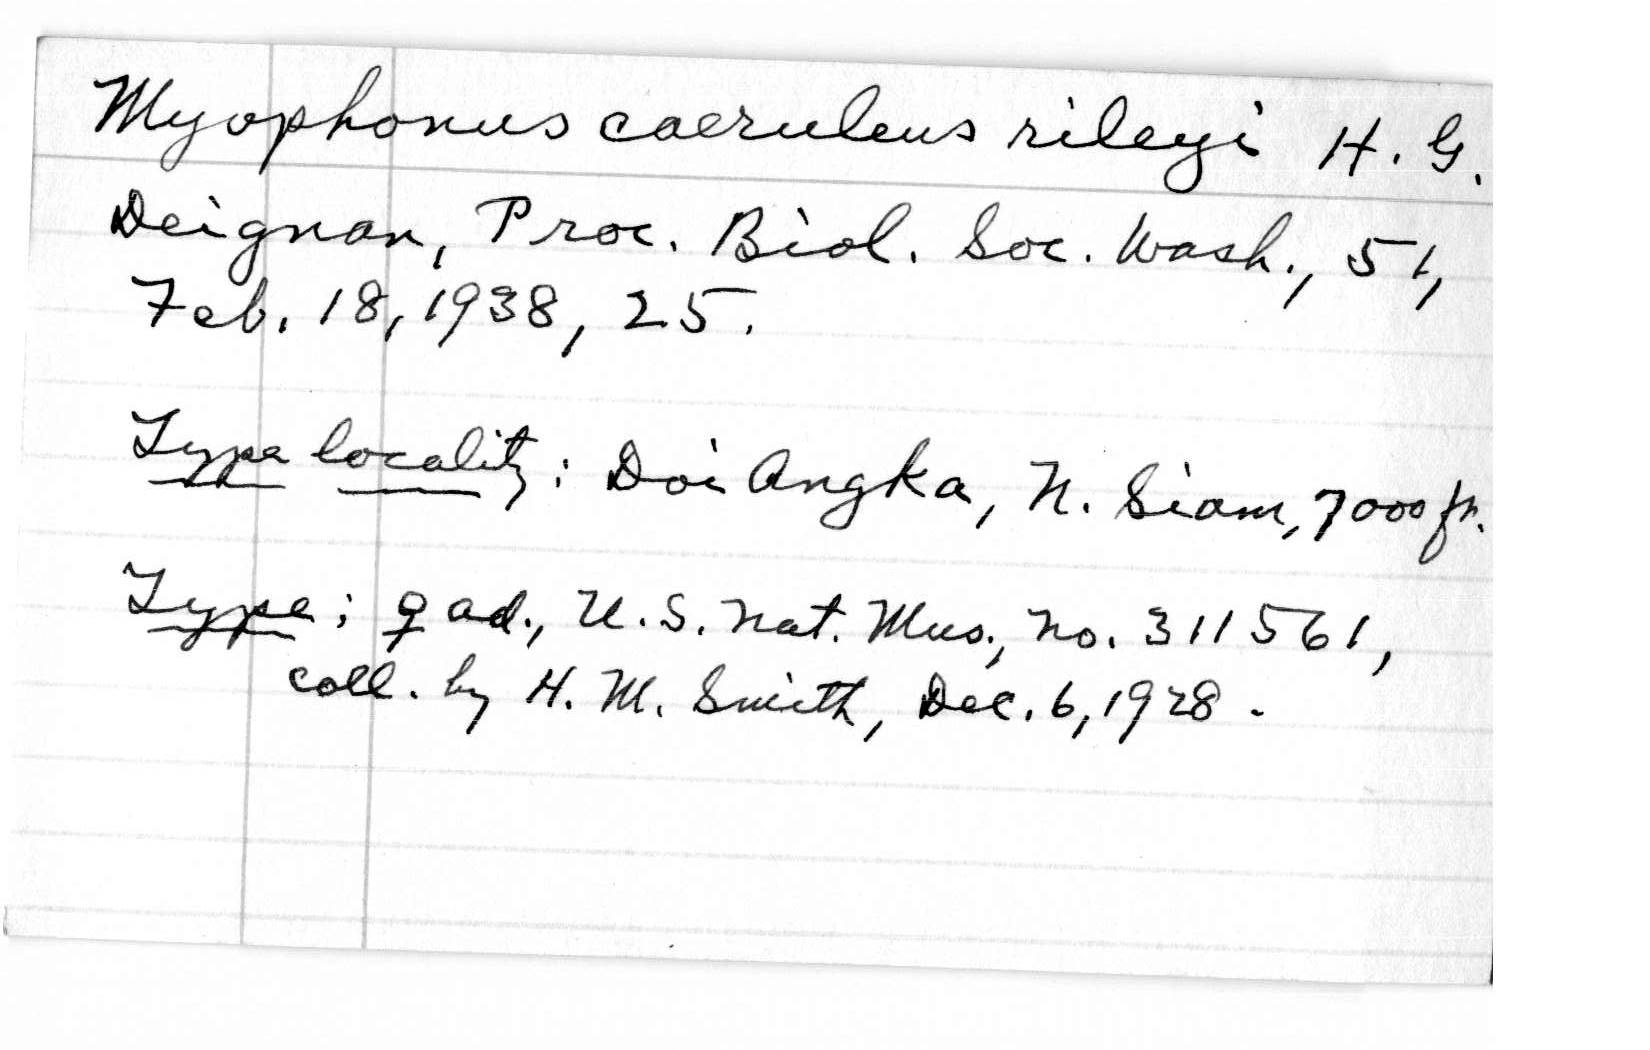 Myophonus caeruleus rileyi H. G.
Deignan, Proc. Biol. Soc. Wash., 51,
Feb. 18, 1938, 25.
Type locality: Doi Angka, N. Siam, 7000 ft.
Type: ♀ ad., U.S. Nat. Mus., no. 311561,
coll. by H. M. Smith, Dec. 6, 1928.